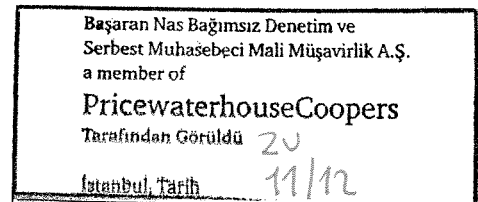 Başaran Nas Bağımsız Denetim ve
Serbest Muhasebeci Mali Müşavirlik A.Ş.
a member of
PricewaterhouseCoopers
Tarafından Görüldü
İstanbul, Tarih 11/12